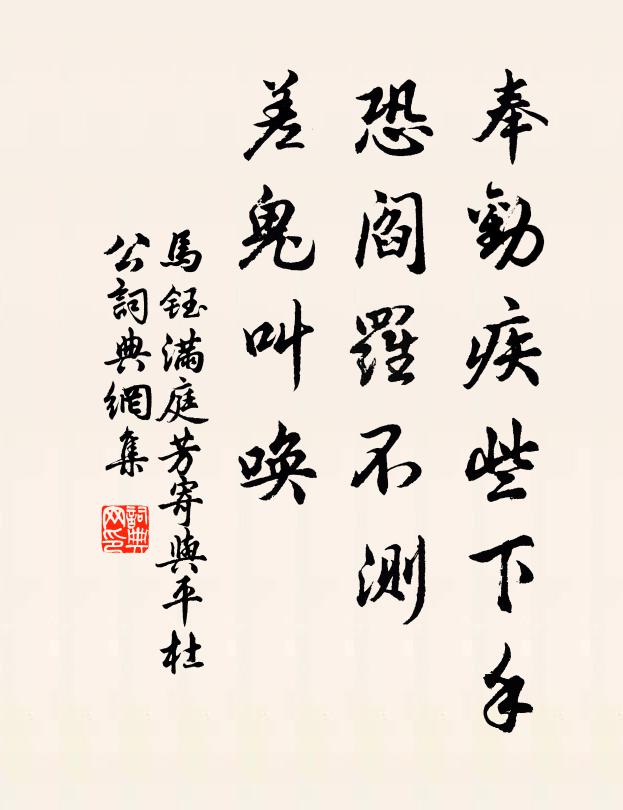 奉勸疾些下手
恐閻羅不測
差鬼叫喚
馬鈺滿庭芳寄與平杜
公詞典網集
詞典网印